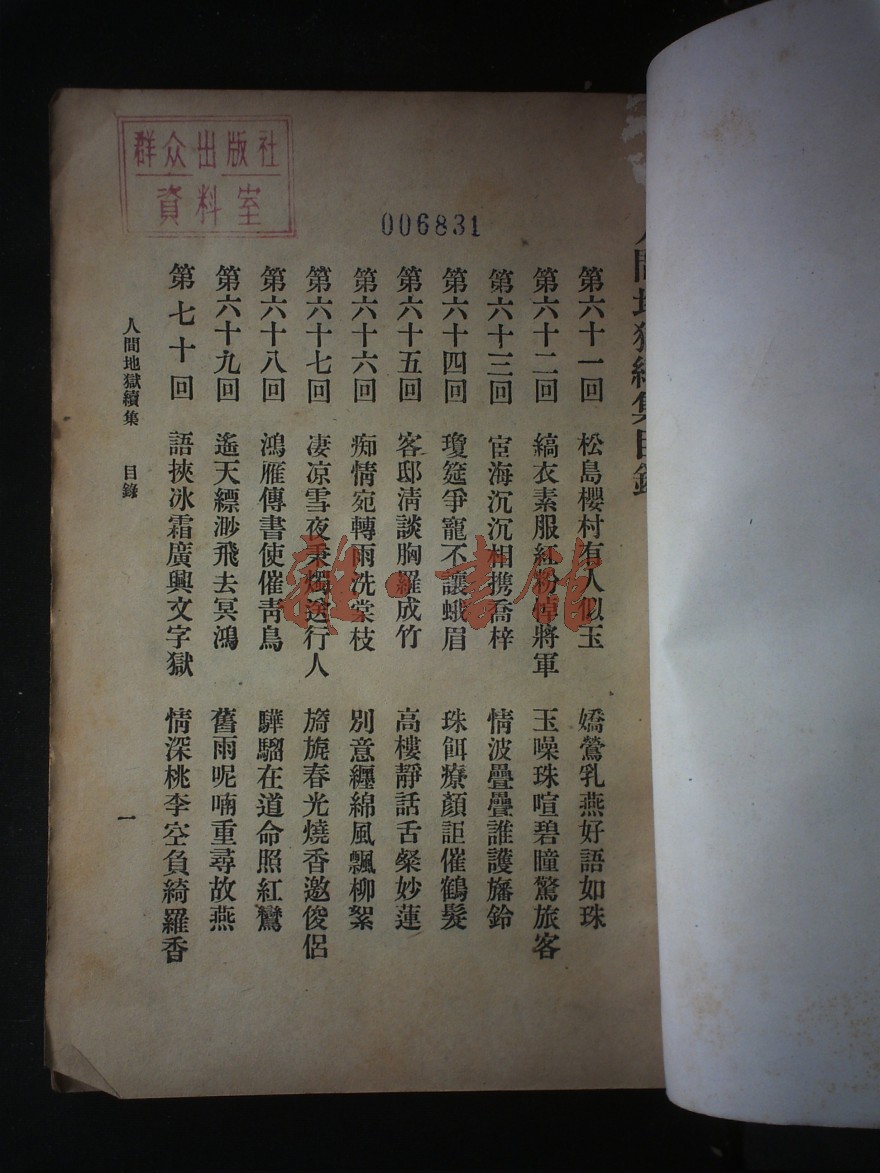 群众出版社
資料室
006831
人間地獄續集目錄
第六十一回 松島櫻村有人似玉 嬌鶯乳燕好語如珠
第六十二回 縞衣素服紅粉悼將軍 玉噪珠喧碧瞳驚旅客
第六十三回 宦海沉沉相携喬梓 情波疊疊誰護旛鈴
第六十四回 瓊筵爭寵不讓蛾眉 珠餌療顏詎催鶴髮
第六十五回 客邸淸談胸羅成竹 高樓靜話舌粲妙蓮
第六十六回 痴情宛轉雨洗棠枝 別意纏綿風飄柳絮
第六十七回 凄凉雪夜秉燭送行人 旖旎春光燒香邀俊侶
第六十八回 鴻雁傳書使催靑鳥 驊騮在道命照紅鸞
第六十九回 遙天縹渺飛去冥鴻 舊雨呢喃重尋故燕
第七十回 語挾冰霜廣興文字獄 情深桃李空負綺羅香
人間地獄續集 目錄 一
雜·書館